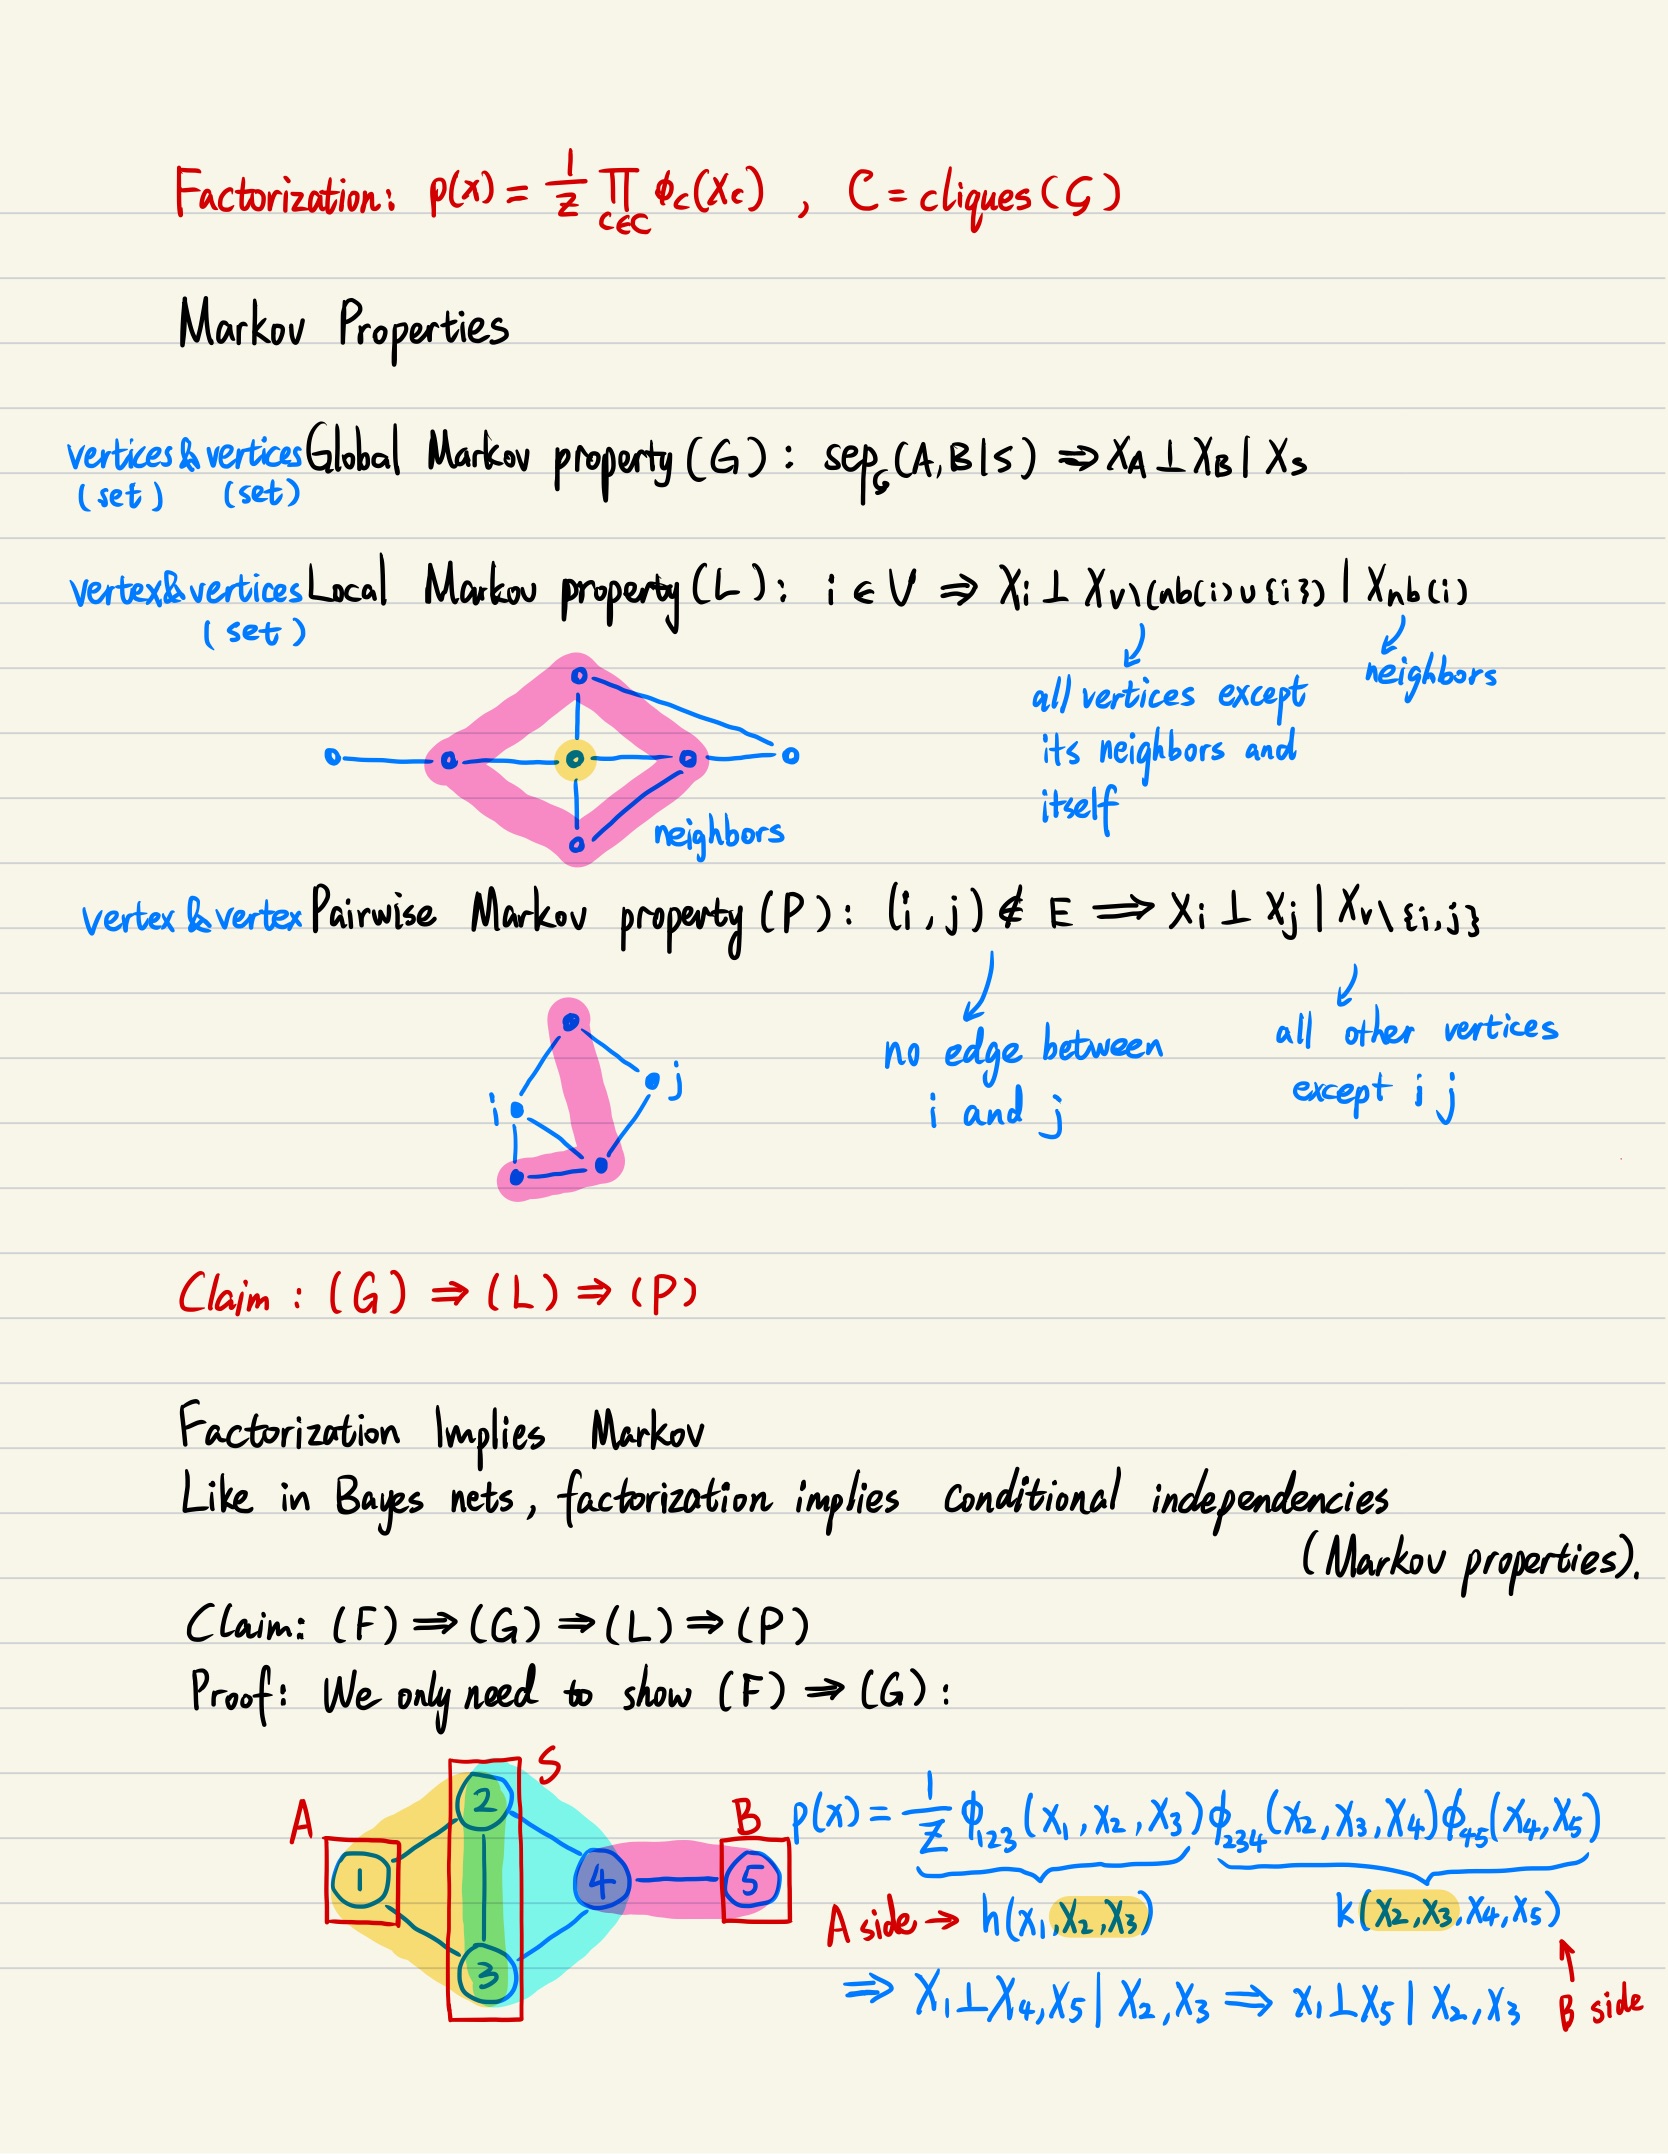 Factorization: p(x) = 1/Z ∏_{c∈C} ϕ_c(X_c) , C = cliques(G)
Markov Properties
vertices & vertices Global Markov property (G): sep_G(A, B | S) ⇒ X_A ⊥ X_B | X_S
(set) (set)
vertex & vertices Local Markov property (L): i ∈ V ⇒ X_i ⊥ X_{V\(nb(i)∪{i})} | X_{nb(i)}
(set)
all vertices except
its neighbors and
itself
neighbors
neighbors
vertex & vertex Pairwise Markov property (P): (i, j) ∉ E ⟹ X_i ⊥ X_j | X_{V\{i,j}}
no edge between
i and j
all other vertices
except i j
i
j
Claim : (G) ⇒ (L) ⇒ (P)
Factorization Implies Markov
Like in Bayes nets, factorization implies conditional independencies
(Markov properties).
Claim: (F) ⇒ (G) ⇒ (L) ⇒ (P)
Proof: We only need to show (F) ⇒ (G):
A S B
1 2 3 4 5
p(x) = 1/Z ϕ_123(X_1, X_2, X_3) ϕ_234(X_2, X_3, X_4) ϕ_45(X_4, X_5)
A side → h(X_1, X_2, X_3) k(X_2, X_3, X_4, X_5)
⇒ X_1 ⊥ X_4, X_5 | X_2, X_3 ⇒ X_1 ⊥ X_5 | X_2, X_3
B side